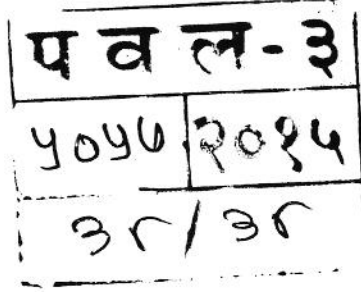 प व ल - ३
५०५७ २०१५
३८/३८